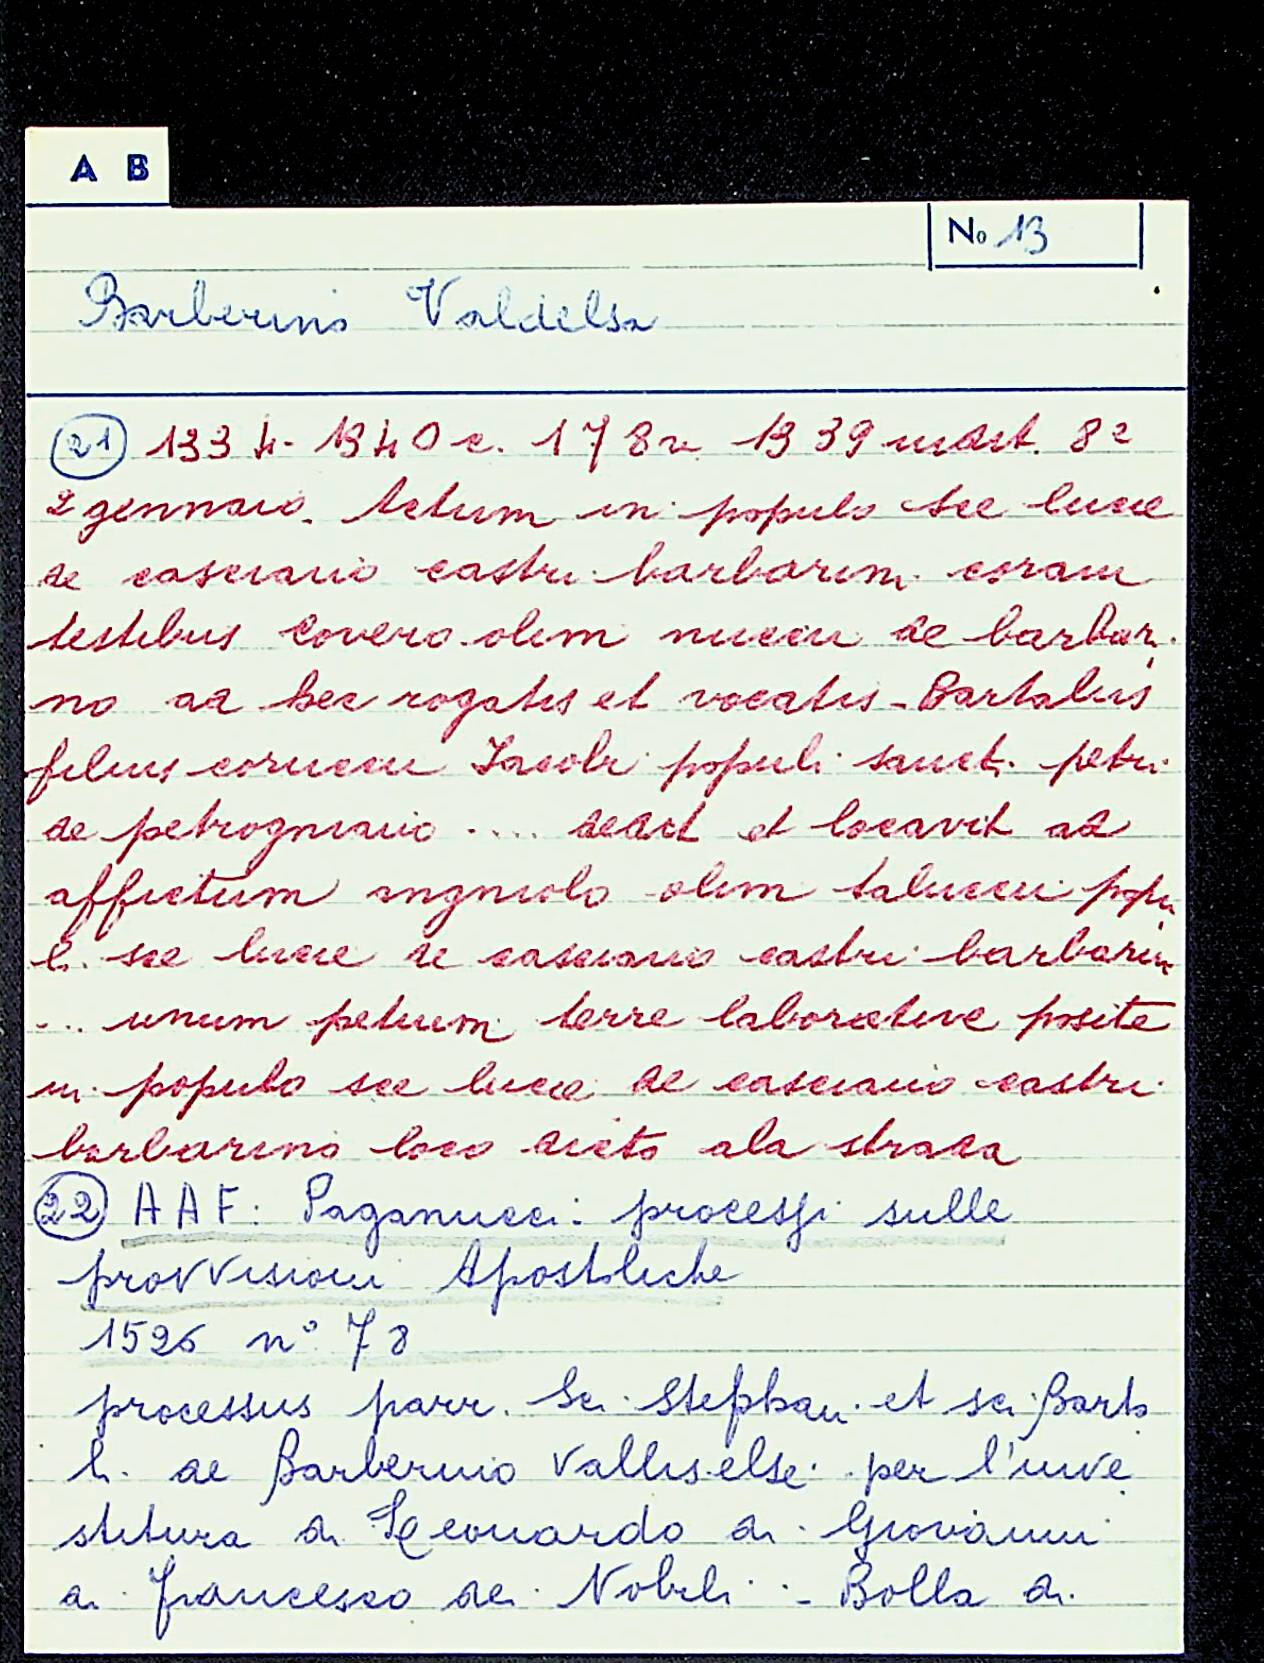 A B
No 13
Barberino Valdelsa
21 1334-1340 c. 178v 1339 indict. 8a
2 gennaio. Actum in populo sce lucie
de casciano castri barbarini coram
testibus Covero olim nuccii de barbari
no ad hec rogatis et vocatis - Bartalus
filius coruccii Iacobi populi sancti petri
de petrogniano .... dedit et locavit ad
affictum angniolo olim talucci popu
li sce lucie de casciano castri barbarini
... unum petium terre laborative posite
in populo sce lucie de casciano castri
barbarino loco dicto ala strada
22 AAF: Paganucci: processi sulle
provvisioni Apostoliche
1526 n° 78
processus parr. Sci Stephani et sci Barto
li de Barberino Vallis else per l'inve
stitura di Leonardo di Giovanni
di Francesco dei Nobili - Bolla di